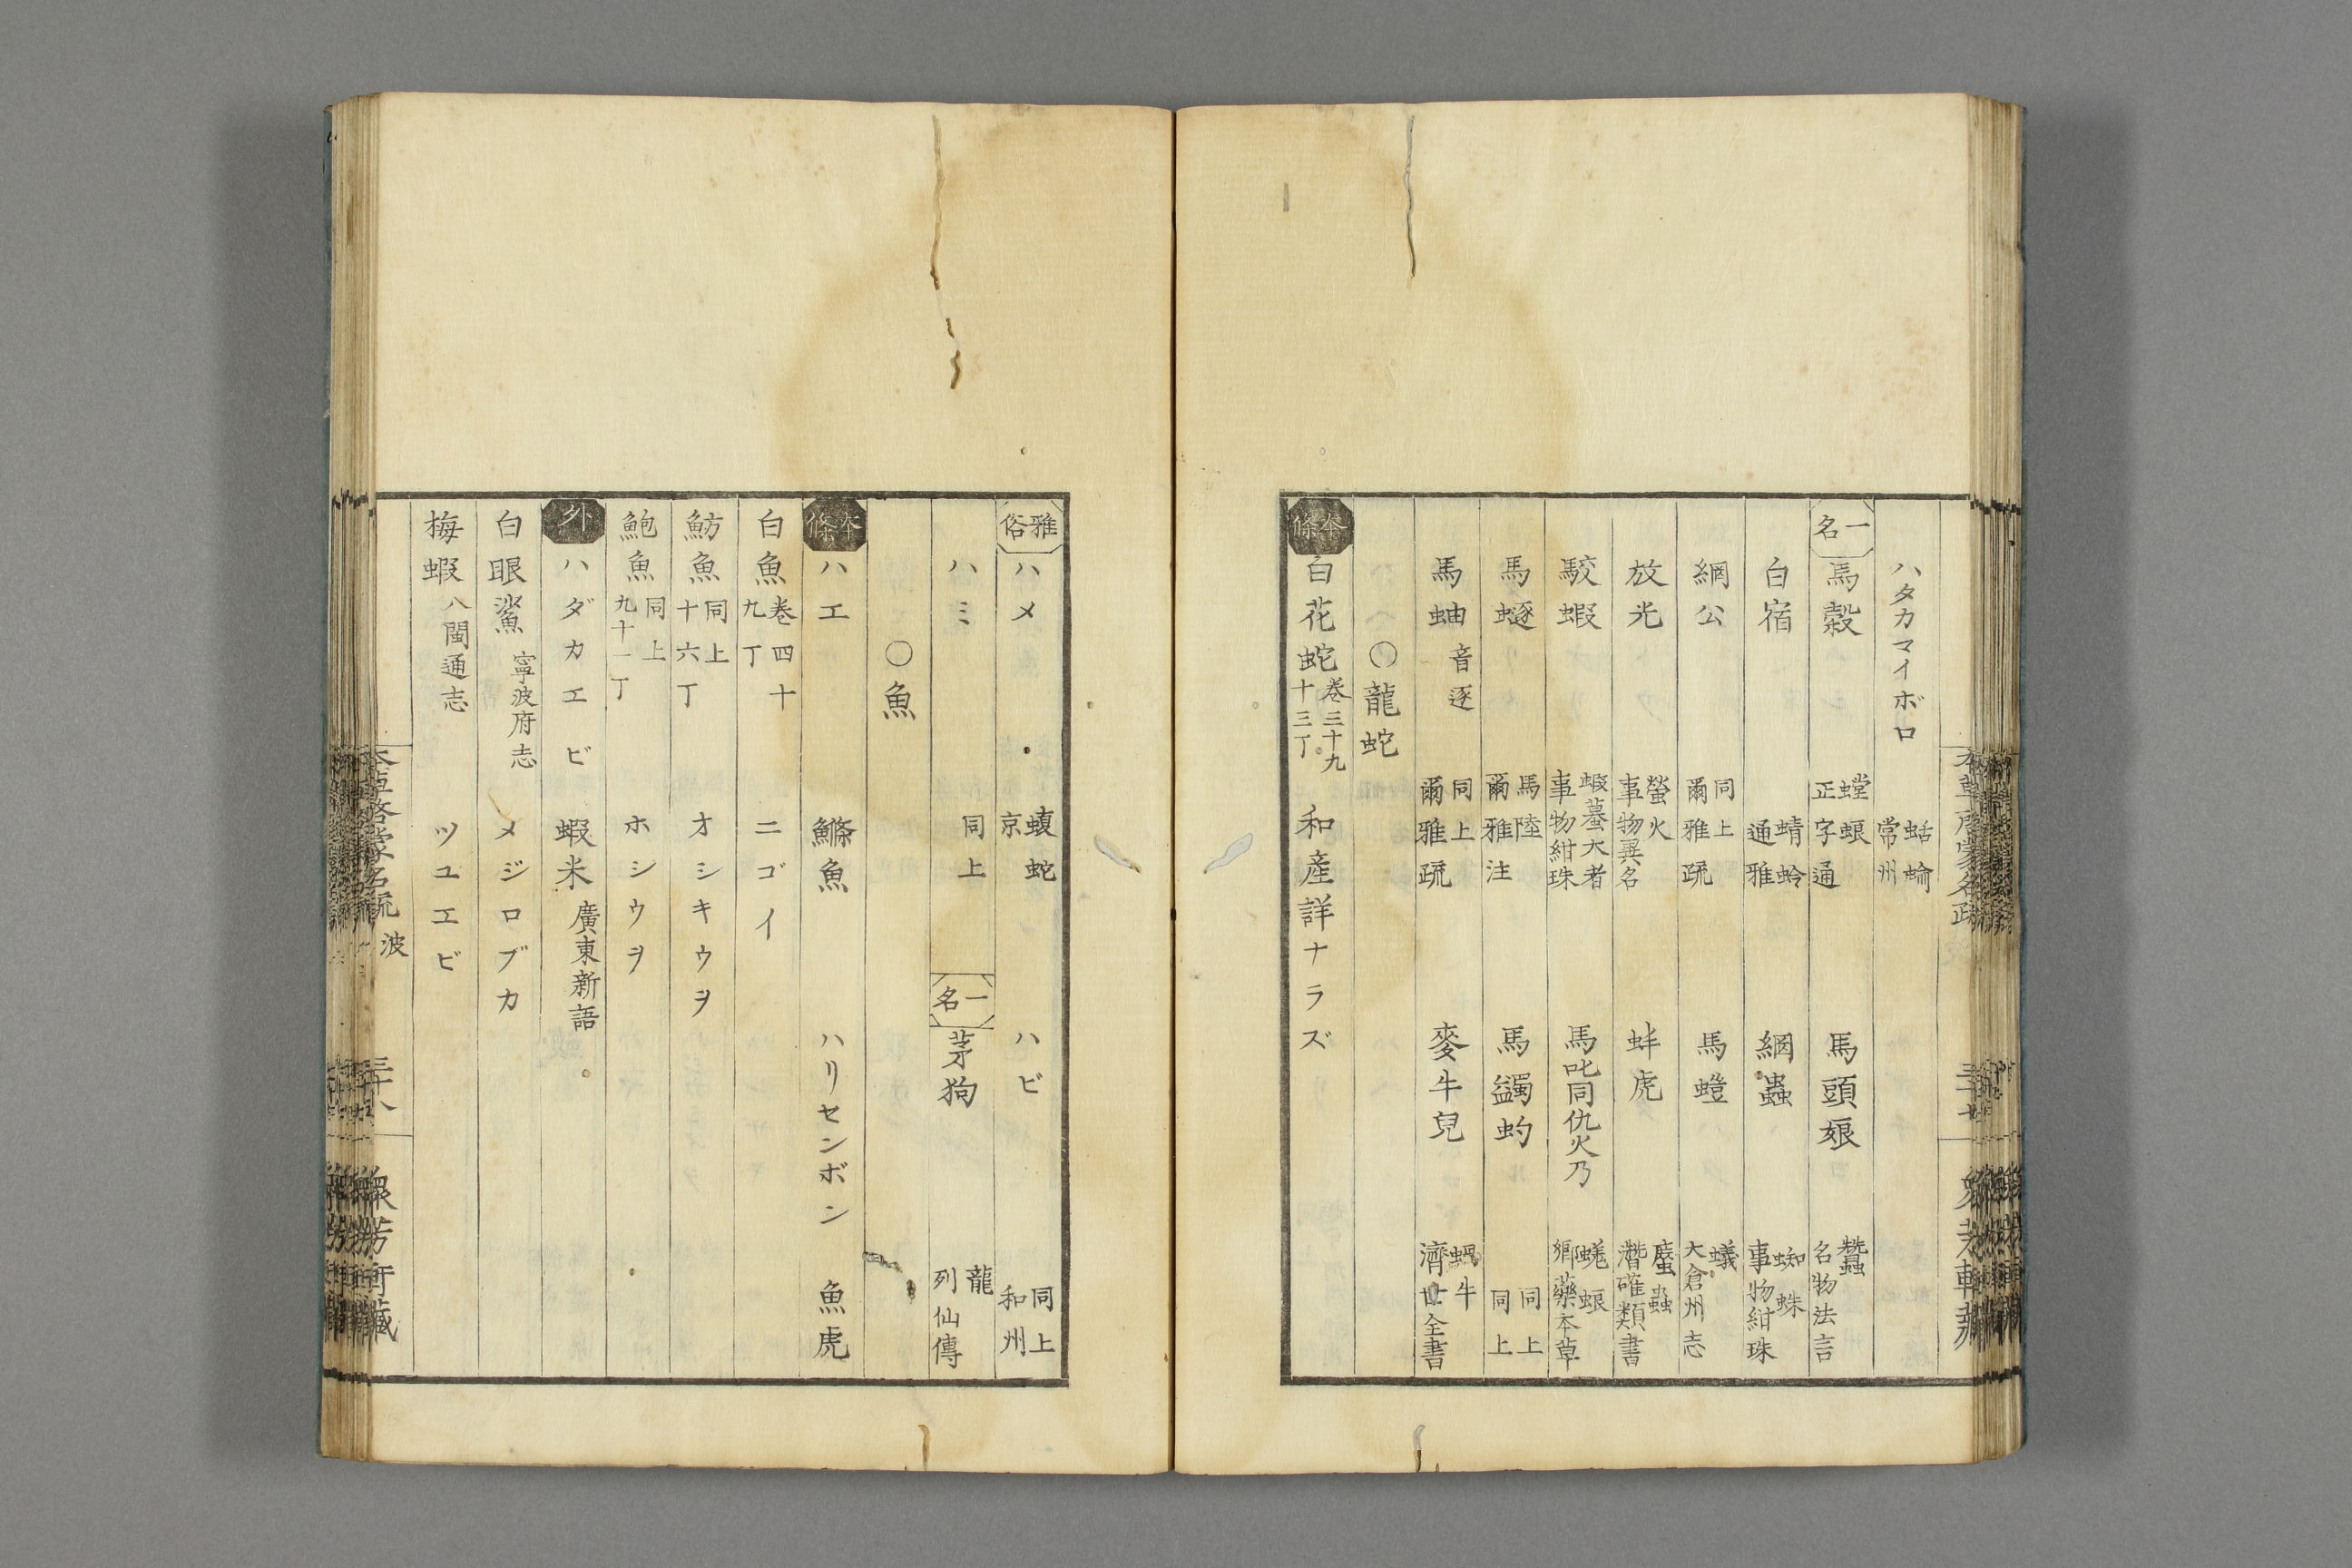 ハタカマイボロ 蛞蝓 常州
一名 馬穀 螳蜋 正字通 馬頭娘 蠶 名物法言
白宿 蜻蛉 通雅 網蟲 蜘蛛 事物紺珠
網公 同上 爾雅疏 馬螘 蟻 大倉州志
放光 螢火 事物異名 蚌虎 䗪蟲 潛確類書
駮蝦 蝦蟇大者 事物紺珠 馬叱同仇火乃 蜣蜋 鄉藥本草
馬蝬 馬陸 爾雅注 馬蠲蚐 同上 同上
馬蚰 音逐 同上 爾雅疏 麥牛兒 蝸牛 濟世全書
〇龍蛇
本條 白花蛇 卷三十九 十三丁 和產詳ナラズ
雅俗 ハメ 蝮蛇 京 ハビ 同上 和州
ハミ 同上 一名 茅狗 龍 列仙傳
〇魚
本條 ハエ 鰷魚 ハリセンボン 魚虎
白魚 卷四十 九丁 ニゴイ
魴魚 同上 十六丁 オシキウヲ
鮑魚 同上 九十一丁 ホシウヲ
外 ハダカエビ 蝦米 廣東新語
白眼鯊 寧波府志 メジロブカ
梅蝦 八閩通志 ツユエビ
本草啓蒙名疏 波 三十八 衆芳軒藏